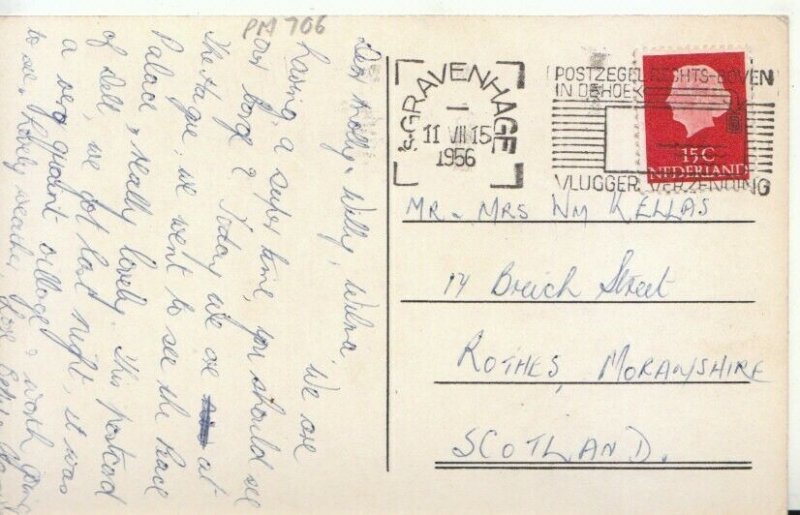 PM 706
Dear Molly, Willy, Wilma
We are
having a super time, you should see
our barge. Today we are at
The Hague, we went to see the Peace
Palace, really lovely. This postcard
of Delf, we got last night, it was
a very quaint village & worth going
to see. Lovely weather, Love
'S GRAVENHAGE
11 VII 15
1956
POSTZEGEL RECHTS-BOVEN
IN DE HOEK
VLUGGER VERZENDING
15 C
NEDERLAND
MR. MRS WM KELLAS
14 Breich Street
ROTHES, MORAYSHIRE
SCOTLAND.